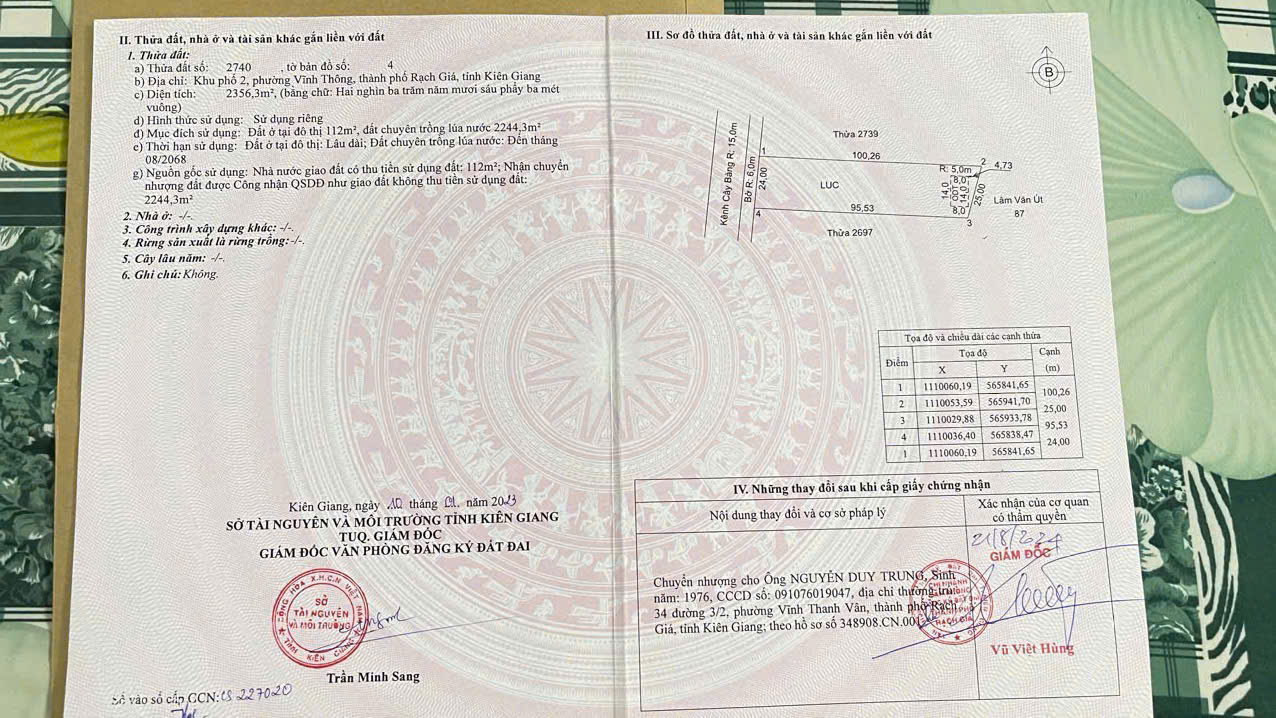 II. Thửa đất, nhà ở và tài sản khác gắn liền với đất
1. Thửa đất:
a) Thửa đất số: 2740 , tờ bản đồ số: 4
b) Địa chỉ: Khu phố 2, phường Vĩnh Thông, thành phố Rạch Giá, tỉnh Kiên Giang
c) Diện tích: 2356,3m², (bằng chữ: Hai nghìn ba trăm năm mươi sáu phẩy ba mét
vuông)
d) Hình thức sử dụng: Sử dụng riêng
đ) Mục đích sử dụng: Đất ở tại đô thị 112m², đất chuyên trồng lúa nước 2244,3m²
e) Thời hạn sử dụng: Đất ở tại đô thị: Lâu dài; Đất chuyên trồng lúa nước: Đến tháng
08/2068
g) Nguồn gốc sử dụng: Nhà nước giao đất có thu tiền sử dụng đất: 112m²; Nhận chuyển
nhượng đất được Công nhận QSDĐ như giao đất không thu tiền sử dụng đất:
2244,3m²
2. Nhà ở: -/-.
3. Công trình xây dựng khác: -/-.
4. Rừng sản xuất là rừng trồng: -/-.
5. Cây lâu năm: -/-.
6. Ghi chú: Không.
Kiên Giang, ngày 10 tháng 01 năm 2023
SỞ TÀI NGUYÊN VÀ MÔI TRƯỜNG TỈNH KIÊN GIANG
TUQ. GIÁM ĐỐC
GIÁM ĐỐC VĂN PHÒNG ĐĂNG KÝ ĐẤT ĐAI
CỘNG HÒA X.H.C.N VIỆT NAM
SỞ
TÀI NGUYÊN
VÀ MÔI TRƯỜNG
TỈNH KIÊN GIANG
Trần Minh Sang
Số vào sổ cấp GCN: CS 227020
III. Sơ đồ thửa đất, nhà ở và tài sản khác gắn liền với đất
B
Thửa 2739
Kênh Cây Bàng R: 15,0m
Bờ R: 6,0m
1
100,26
2
4,73
R: 5,0m
24,00
LUC
8,0
14,0
ODT
14,0
25,00
8,0
Lâm Văn Út
87
4
95,53
3
Thửa 2697
Tọa độ và chiều dài các cạnh thửa
Điểm Tọa độ Cạnh
X Y (m)
1 1110060,19 565841,65
100,26
2 1110053,59 565941,70
25,00
3 1110029,88 565933,78
95,53
4 1110036,40 565838,47
24,00
1 1110060,19 565841,65
IV. Những thay đổi sau khi cấp giấy chứng nhận
Nội dung thay đổi và cơ sở pháp lý
Xác nhận của cơ quan
có thẩm quyền
21/8/2024
GIÁM ĐỐC
Chuyển nhượng cho Ông NGUYỄN DUY TRUNG, Sinh
năm: 1976, CCCD số: 091076019047, địa chỉ thường trú:
34 đường 3/2, phường Vĩnh Thanh Vân, thành phố Rạch
Giá, tỉnh Kiên Giang; theo hồ sơ số 348908.CN.001
CHI NHÁNH
RẠCH GIÁ
Vũ Việt Hùng